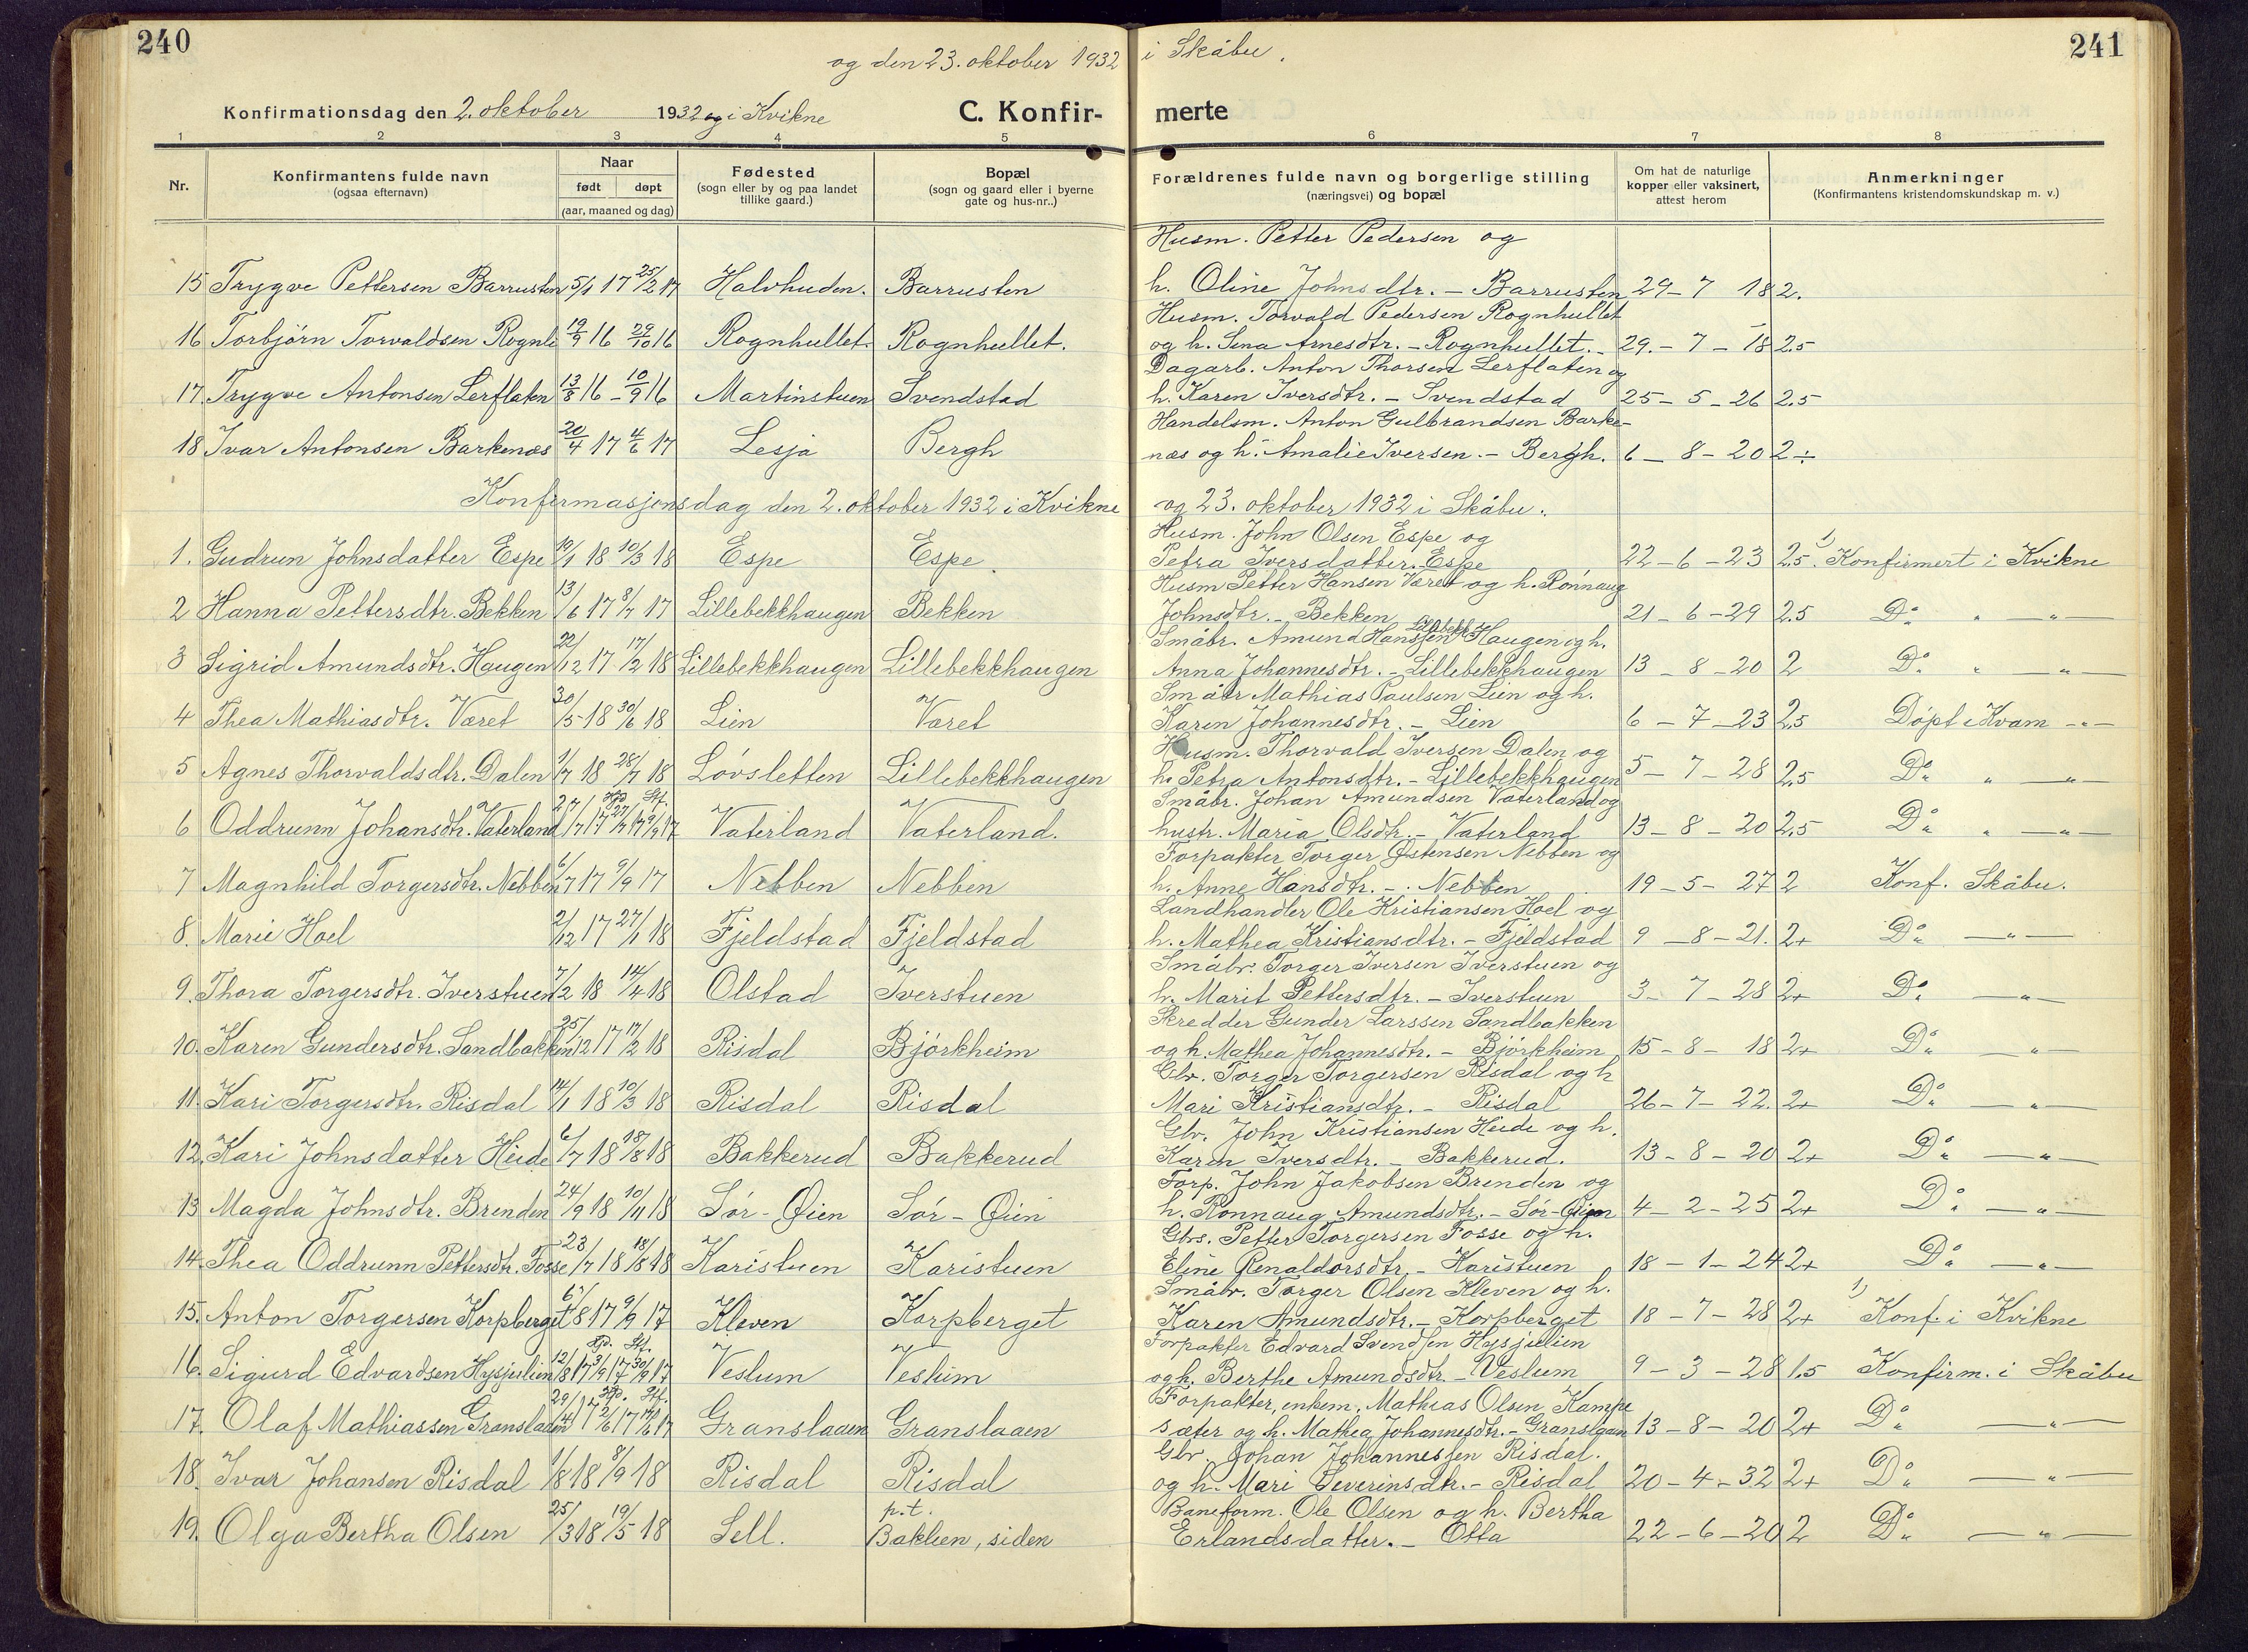 240
241
og den 23. oktober 1932 i Skåbu.
Konfirmationsdag den 2. oktober 1932 og i Kvikne
C. Konfir- merte
1 2 3 4 5 6 7 8
Nr.
Konfirmantens fulde navn
(ogsaa efternavn)
Naar
født døpt
(aar, maaned og dag)
Fødested
(sogn eller by og paa landet
tillike gaard.)
Bopæl
(sogn og gaard eller i byerne
gate og hus-nr..)
Forældrenes fulde navn og borgerlige stilling
(næringsvei) og bopæl
Om hat de naturlige
kopper eller vaksinert,
attest herom
Anmerkninger
(Konfirmantens kristendomskundskap m. v.)
Husm. Petter Pedersen og
15 Trygve Pettersen Barrusten 5/1 17 25/2 17 Halvhuden. Barrusten h. Oline Johnsdtr. - Barrusten 29-7 18 2.
Husm. Torvald Pedersen Rognhullet
16 Torbjørn Torvaldsen Rognh 19/9 16 29/10 16 Rognhullet. Rognhullet. og h. Sina Arnesdtr. - Rognhullet. 29.-7-18 2.5
Dagarb. Anton Thorsen Lerflaten og
17. Trygve Antonsen Lerflaten 13/8 16 - 10/9 16 Martinstuen Svendstad h. Karen Iversdtr. - Svendstad 25-5-26 2.5
Handelsm. Anton Gulbrandsen Barke-
18 Ivar Antonsen Barkenæs 20/4 17 4/6 17 Lesja Bergh næs og h. Amalie Iversen. - Bergh. 6-8-20 2÷
Konfirmasjonsdag den 2. oktober 1932 i Kvikne og 23. oktober 1932 i Skåbu.
Husm. John Olsen Espe og
1. Gudrun Johnsdatter Espe 19/1 18 10/3 18 Espe Espe. Petra Iversdatter. Espe 22-6-23 2.5 1) Konfirmert i Kvikne
Husm Petter Hansen Været og h. Rønnaug
2 Hanna Pettersdtr. Bekken 13/6 17 8/7 17 Lillebekkhaugen Bekken Johnsdtr. - Bekken 21-6-29 2.5 Do " — " —
Småbr. Amund Hanssen Lillebekk Haugen og h.
3 Sigrid Amundsdtr. Haugen 22/12 17 17/2 18 Lillebekkhaugen Lillebekkhaugen Anna Johannesdtr. - Lillebekkhaugen 13-8-20 2 Do " — " —
Småbr Mathias Paulsen Lien og h.
4 Thea Mathiasdtr. Været 30/5 18 30/6 18 Lien Været Karen Johannesdtr. - Lien 6-7-23 2.5 Døpt i Kvam — " —
Husm. Thorvald Iversen Dalen og
5 Agnes Thorvaldsdtr. Dalen 1/7 18 28/7 18 Løvsletten Lillebekkhaugen h. Petra Antonsdtr. - Lillebekkhaugen 5-7-28 2.5 Do " — " —
Småbr. Johan Amundsen Vaterland og
Hjd. Stf.
6 Oddrunn Johansdtr. Vaterland 27/7 17 27/7 17 9/9 17 Vaterland Vaterland. hustr. Maria Olsdtr. - Vaterland 13-8-20 2.5 Do " — " —
Forpakter Torger Østensen Nebben og
7 Magnhild Torgersdtr. Nebben 6/7 17 9/9 17 Nebben Nebben h. Anne Hansdtr. - Nebben 19-5-27 2 Konf. Skåbu.
Landhandler Ole Kristiansen Hoel og
8. Marie Hoel 2/12 17 27/1 18 Fjeldstad Fjeldstad h. Mathea Kristiansdtr. - Fjeldstad 9-8-21. 2+ Do — " —
Småbr. Torger Iversen Iverstuen og
9. Thora Torgersdtr. Iverstuen 7/2 18 14/4 18 Olstad Iverstuen h. Marit Pettersdtr. - Iverstuen 3-7-28 2+ Do — " —
Skredder Gunder Larssen Sandbakken
10. Karen Gundersdtr. Sandbakken 25/12 17 17/2 18 Risdal Bjørkheim og h. Mathea Johannesdtr. - Bjørkheim 15-8-18 2+ Do — " —
Gbr. Torger Torgersen Risdal og h
11. Kari Torgersdtr. Risdal 14/1 18 10/3 18 Risdal Risdal Mari Kristiansdtr. - Risdal 26-7-22. 2+ Do — " —
Gbr. John Kristiansen Heide og h.
12. Kari Johnsdatter Heide 6/7 18 18/8 18 Bakkerud Bakkerud Karen Iversdtr. - Bakkerud. 13-8-20 2+ Do — " —
Forp. John Jakobsen Brenden og
13 Magda Johnsdtr. Brenden 24/9 18 10/11 18 Sør-Øien Sør-Øien h. Rønnaug Amundsdtr. - Sør-Øien 4-2-25 2+ Do — " —
Gbs. Petter Torgersen Fosse og h.
14. Thea Oddrunn Pettersdtr. Fosse 23/7 18 18/8 18 Karistuen Karistuen Eline Renaldorsdtr. - Karistuen 18-1-24 2+ Do — " —
Småbr. Torger Olsen Kleven og h.
15. Anton Torgersen Korpberget 6/8 17 9/9 17 Kleven Korpberget Karen Amundsdtr. - Korpberget 18-7-28 2+ 1) Konf. i Kvikne
Forpakter Edvard Svendsen Hysjulien
Hjd. Stf.
16. Sigurd Edvardsen Hysjulien 12/8 17 3/9 17 30/9 17 Veslum Veslum og h. Berthe Amundsdtr - Veslum 9-3-28 1.5 Konfirm. i Skåbu
Forpakter, enkem. Mathias Olsen Kampe
Hjd. Stf.
17. Olaf Mathiassen Granslaaen 29/4 17 2/6 17 17/6 17 Granslaaen Granslaaen sæter og h. Mathea Johannesdtr. - Granslaaen 13-8-20 2+ Do — " —
Gbr Johan Johannessen Risdal.
18. Ivar Johansen Risdal 1/8 18 8/9 18 Risdal Risdal og h. Mari Severinsdtr. - Risdal 20-4-32 2+ Do — " —
p.t. Baneform. Ole Olsen og h. Bertha
19. Olga Bertha Olsen 25/3 18 19/5 18 Sell. Baklien, siden Erlandsdatter. - Otta 22-6-20 2 Do — " —